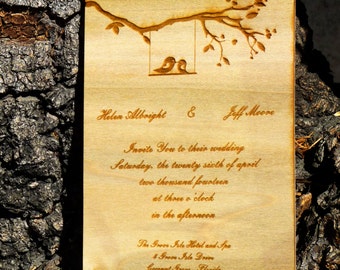 Helen Albright & Jeff Moore
Invits You to their wedding
Saturday, the twenty sixth of april
two thousand fourteen
at three o'clock
in the afternoon
The Grove Isle Hotel and Spa
4 Grove Isle Drive